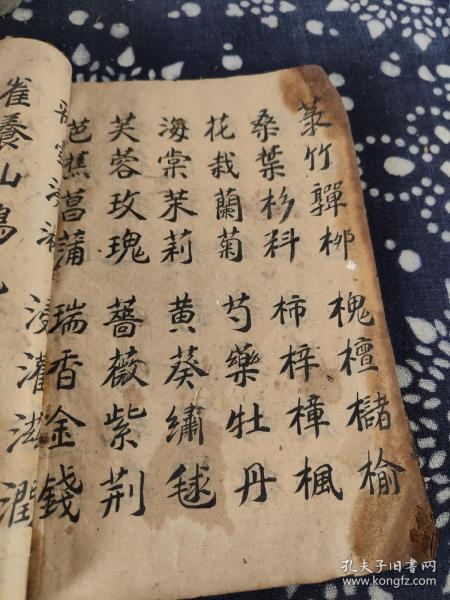 竹柳槐檀櫧榆
桑葉杉科柿梓樟楓
花栽蘭菊芍藥牡丹
海棠茉莉黄葵繡毬
芙蓉玫瑰薔薇紫荆
芭蕉菖蒲瑞香金錢
浸灌滋潤
雀養山
孔夫子旧书网
www.kongfz.com